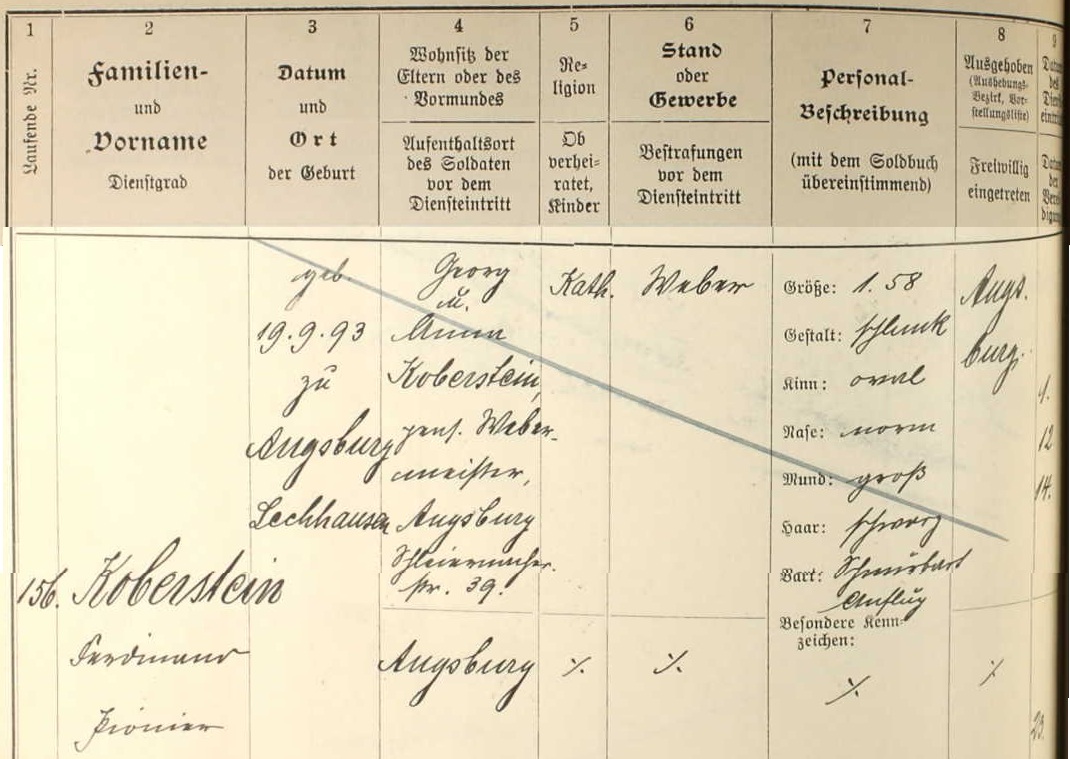 1
Laufende Nr.
2
Familien-
und
Vorname
Dienstgrad
3
Datum
und
Ort
der Geburt
4
Wohnsitz der
Eltern oder des
Vormundes
Aufenthaltsort
des Soldaten
vor dem
Diensteintritt
5
Re-
ligion
Ob
verhei-
ratet,
Kinder
6
Stand
oder
Gewerbe
Bestrafungen
vor dem
Diensteintritt
7
Personal-
Beschreibung
(mit dem Soldbuch
übereinstimmend)
8
Ausgehoben
(Aushebungs-
Bezirk, Vor-
stellungsliste)
Freiwillig
eingetreten
9
156.
Koberstein
Ferdinand
Pionier
geb.
19.9.93
zu
Augsburg
Lechhausen
Georg
u.
Anna
Koberstein,
pens. Weber-
meister,
Augsburg
Schleiermacher-
str. 39.
Augsburg
Kath.
./.
Weber
./.
Größe: 1.58
Gestalt: schlank
Kinn: oval
Nase: norm
Mund: groß
Haar: schwarz
Bart: Schnurbart
Anflug
Besondere Kenn-
zeichen:
./.
Augs.
burg.
./.
12
14.